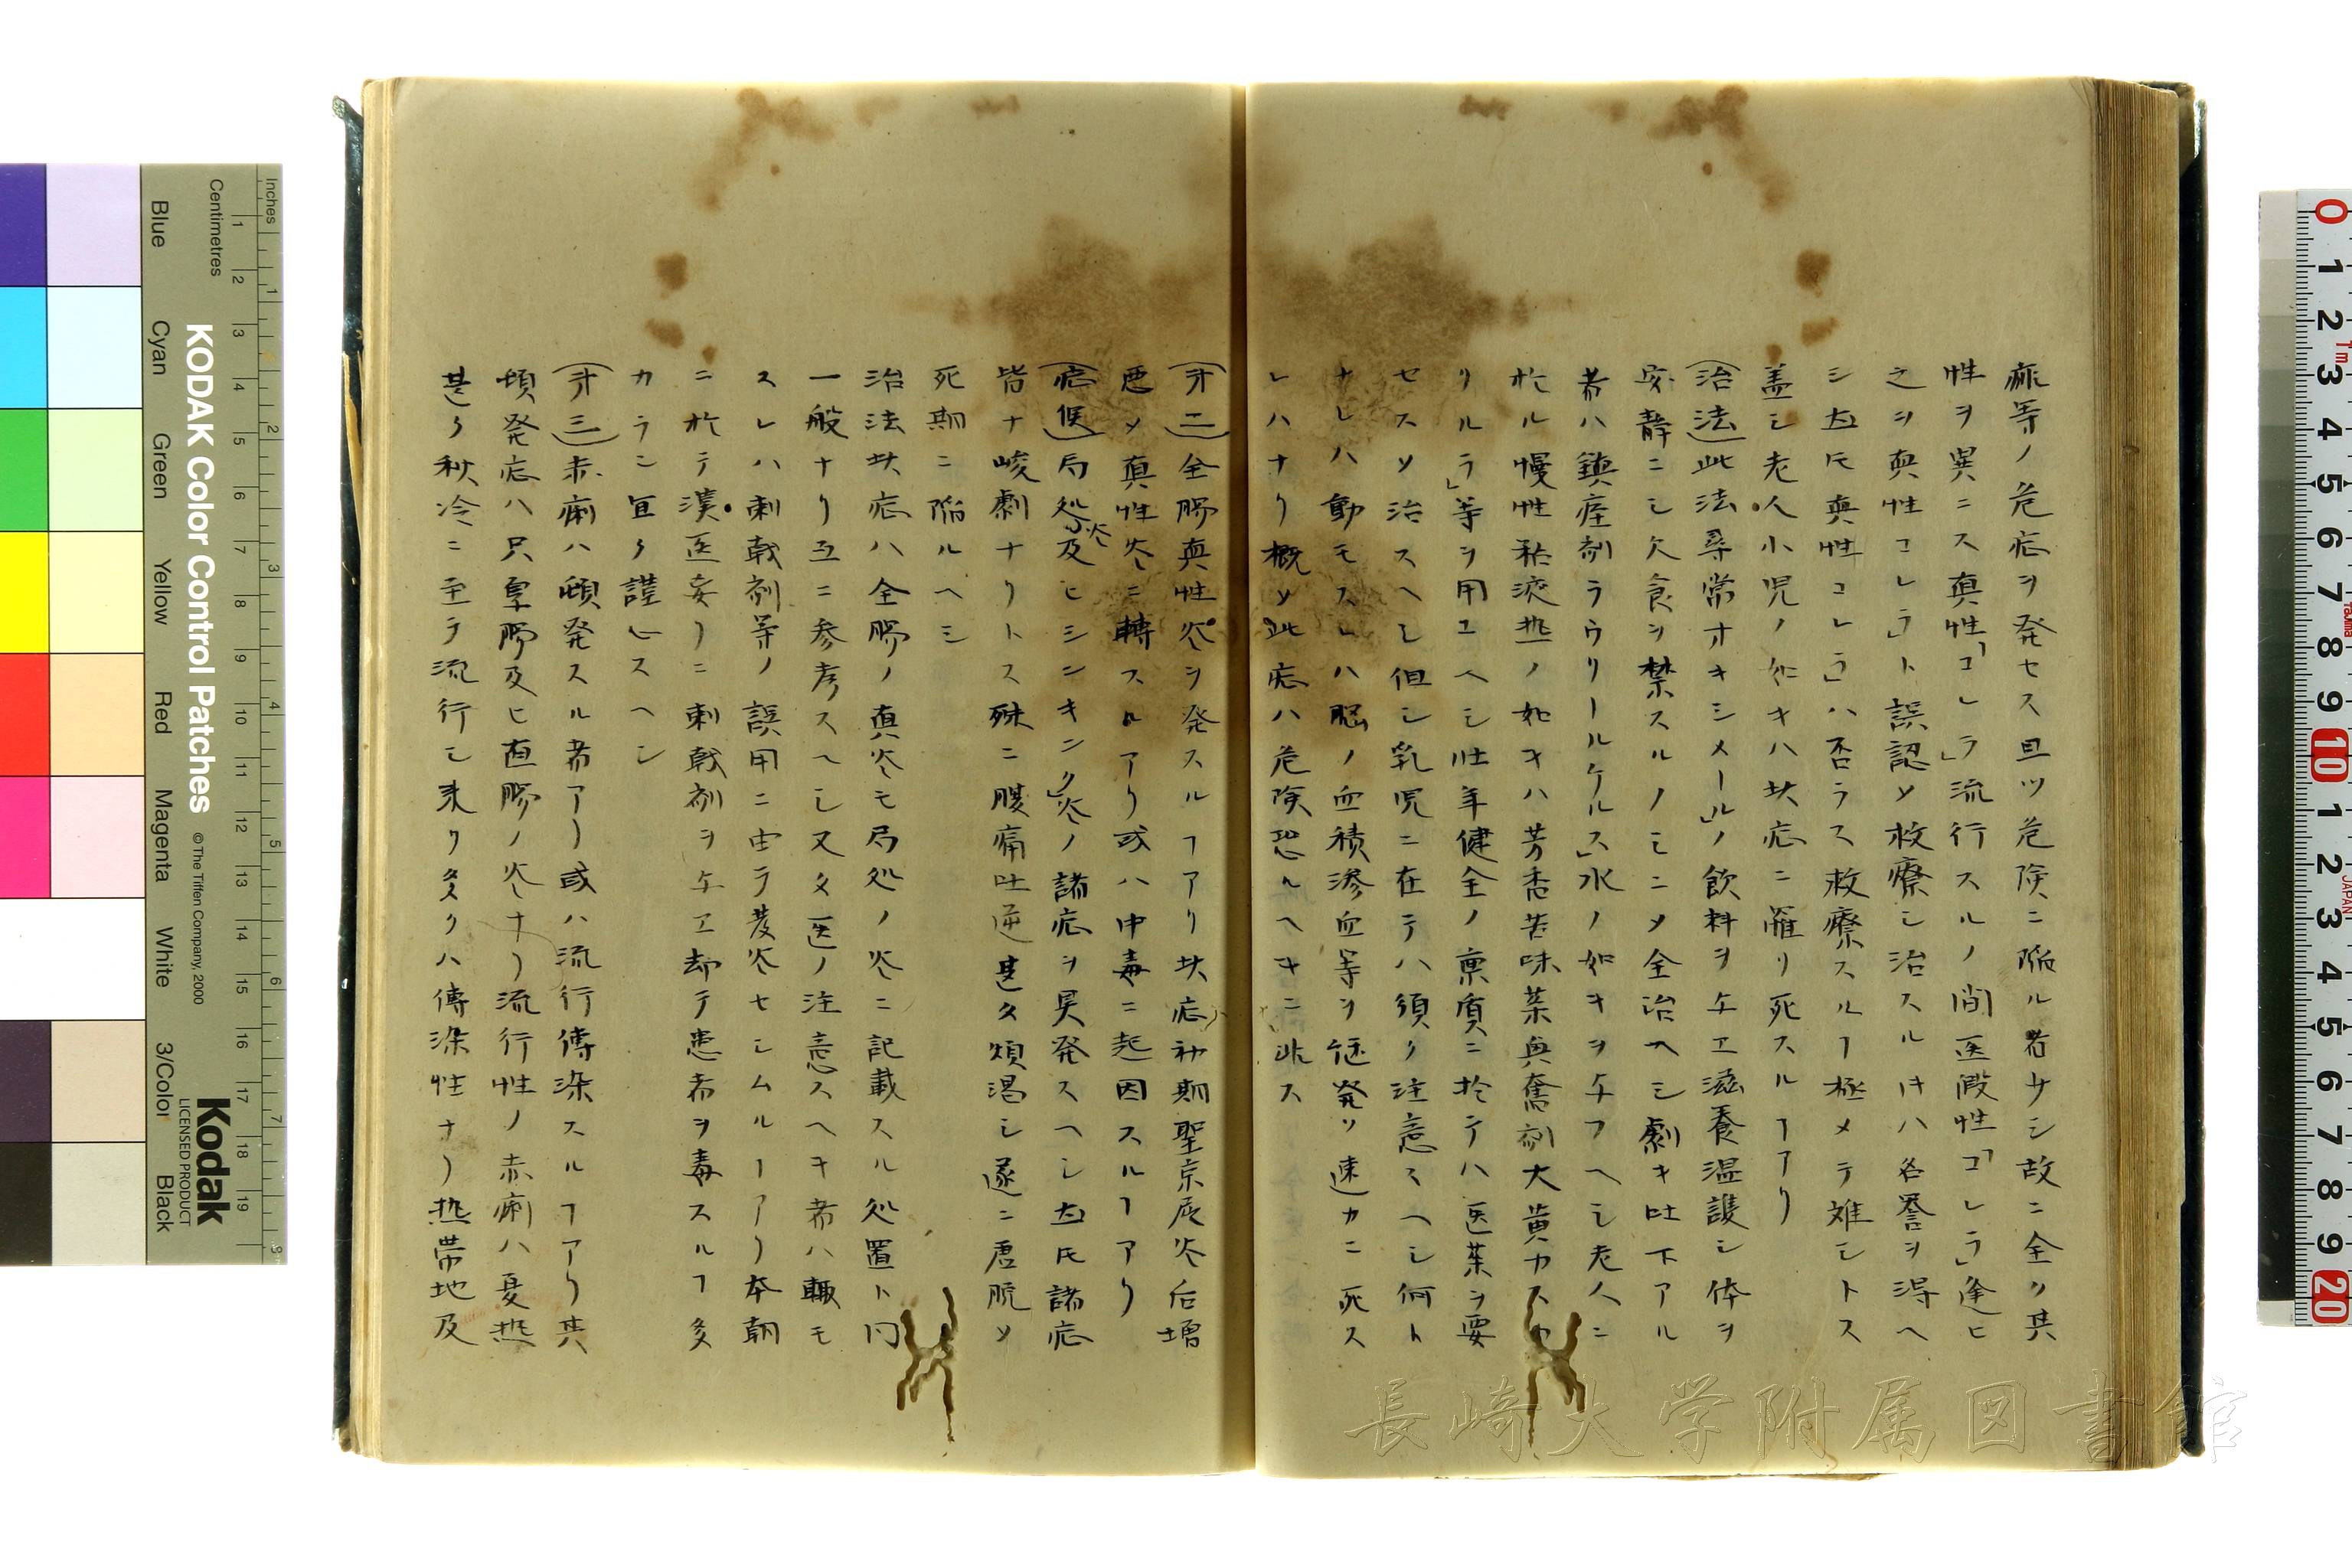 痲等ノ危症ヲ発セス且ツ危険ニ陥ル者サシ故ニ全ク其
性ヲ異ニス真性「コレラ」流行スルノ間医假性「コレラ」逢ヒ
之ヲ真性コレラ」ト誤認メ救療シ治スルキハ名誉ヲ得ヘ
シ古氏真性コレラ」ハ否ラス救療スルヿ極メテ難シトス
盖シ老人小児ノ如キハ此症ニ罹リ死スルヿアリ
(治法)此法尋常オキシメール」ノ飲料ヲ与エ滋養温護シ体ヲ
安静ニシ欠食ヲ禁スルノミニメ全治ヘシ劇キ吐下アル
者ハ鎮痙剤ラウリールケルス」水ノ如キヲ与フヘシ老人ニ
於ル慢性粘液熱ノ如キハ芳香苦味薬興奮剤大黄カスカ
リルラ」等ヲ用ユヘシ壮年健全ノ稟質ニ於テハ医薬ヲ要
セスメ治スヘシ但シ乳児ニ在テハ須ク注意スヘシ何ト
ナレハ動モスレハ脳ノ血積滲血等ヲ継発メ速カニ死ス
レハナリ概メ此症ハ危険恐ルヘキニ非ス
(第二)全膓真性炎ヲ発スルヿアリ此症初期聖京倔炎后増
悪メ真性炎ニ轉スルアリ或ハ中毒ニ起因スルヿアリ
(症候)局処炎及ヒシンキンク」炎ノ諸症ヲ具発スヘシ古氏諸症
皆ナ峻劇ナリトス殊ニ腹痛吐逆甚タ煩渇シ遂ニ虚脱メ
死期ニ陥ルヘシ
治法此症ハ全膓ノ真炎モ局処ノ炎ニ記載スル処置ト同
一般ナリ互ニ参考スヘシ又タ医ノ注意スヘキ者ハ輙モ
スレハ刺戟剤等ノ誤用ニ由テ発炎セシムルヿアリ本朝
ニ於テ漢医妄リニ刺戟剤ヲ与エ却テ患者ヲ毒スルヿ多
カラン宜ク謹心スヘシ
(第三)赤痢ハ頓発スル者アリ或ハ流行傳染スルヿアリ其
頓発症ハ只阜膓及ヒ直膓ノ炎ナリ流行性ノ赤痢ハ夏熱
甚ク秋冷ニ至テ流行シ来リ多クハ傳染性ナリ熱帯地及
KODAK Color Control Patches
© The Tiffen Company, 2000
Kodak
LICENSED PRODUCT
Inches
Centimetres
Blue
Cyan
Green
Yellow
Red
Magenta
White
3/Color
Black
JAPAN
長崎大学附属図書館